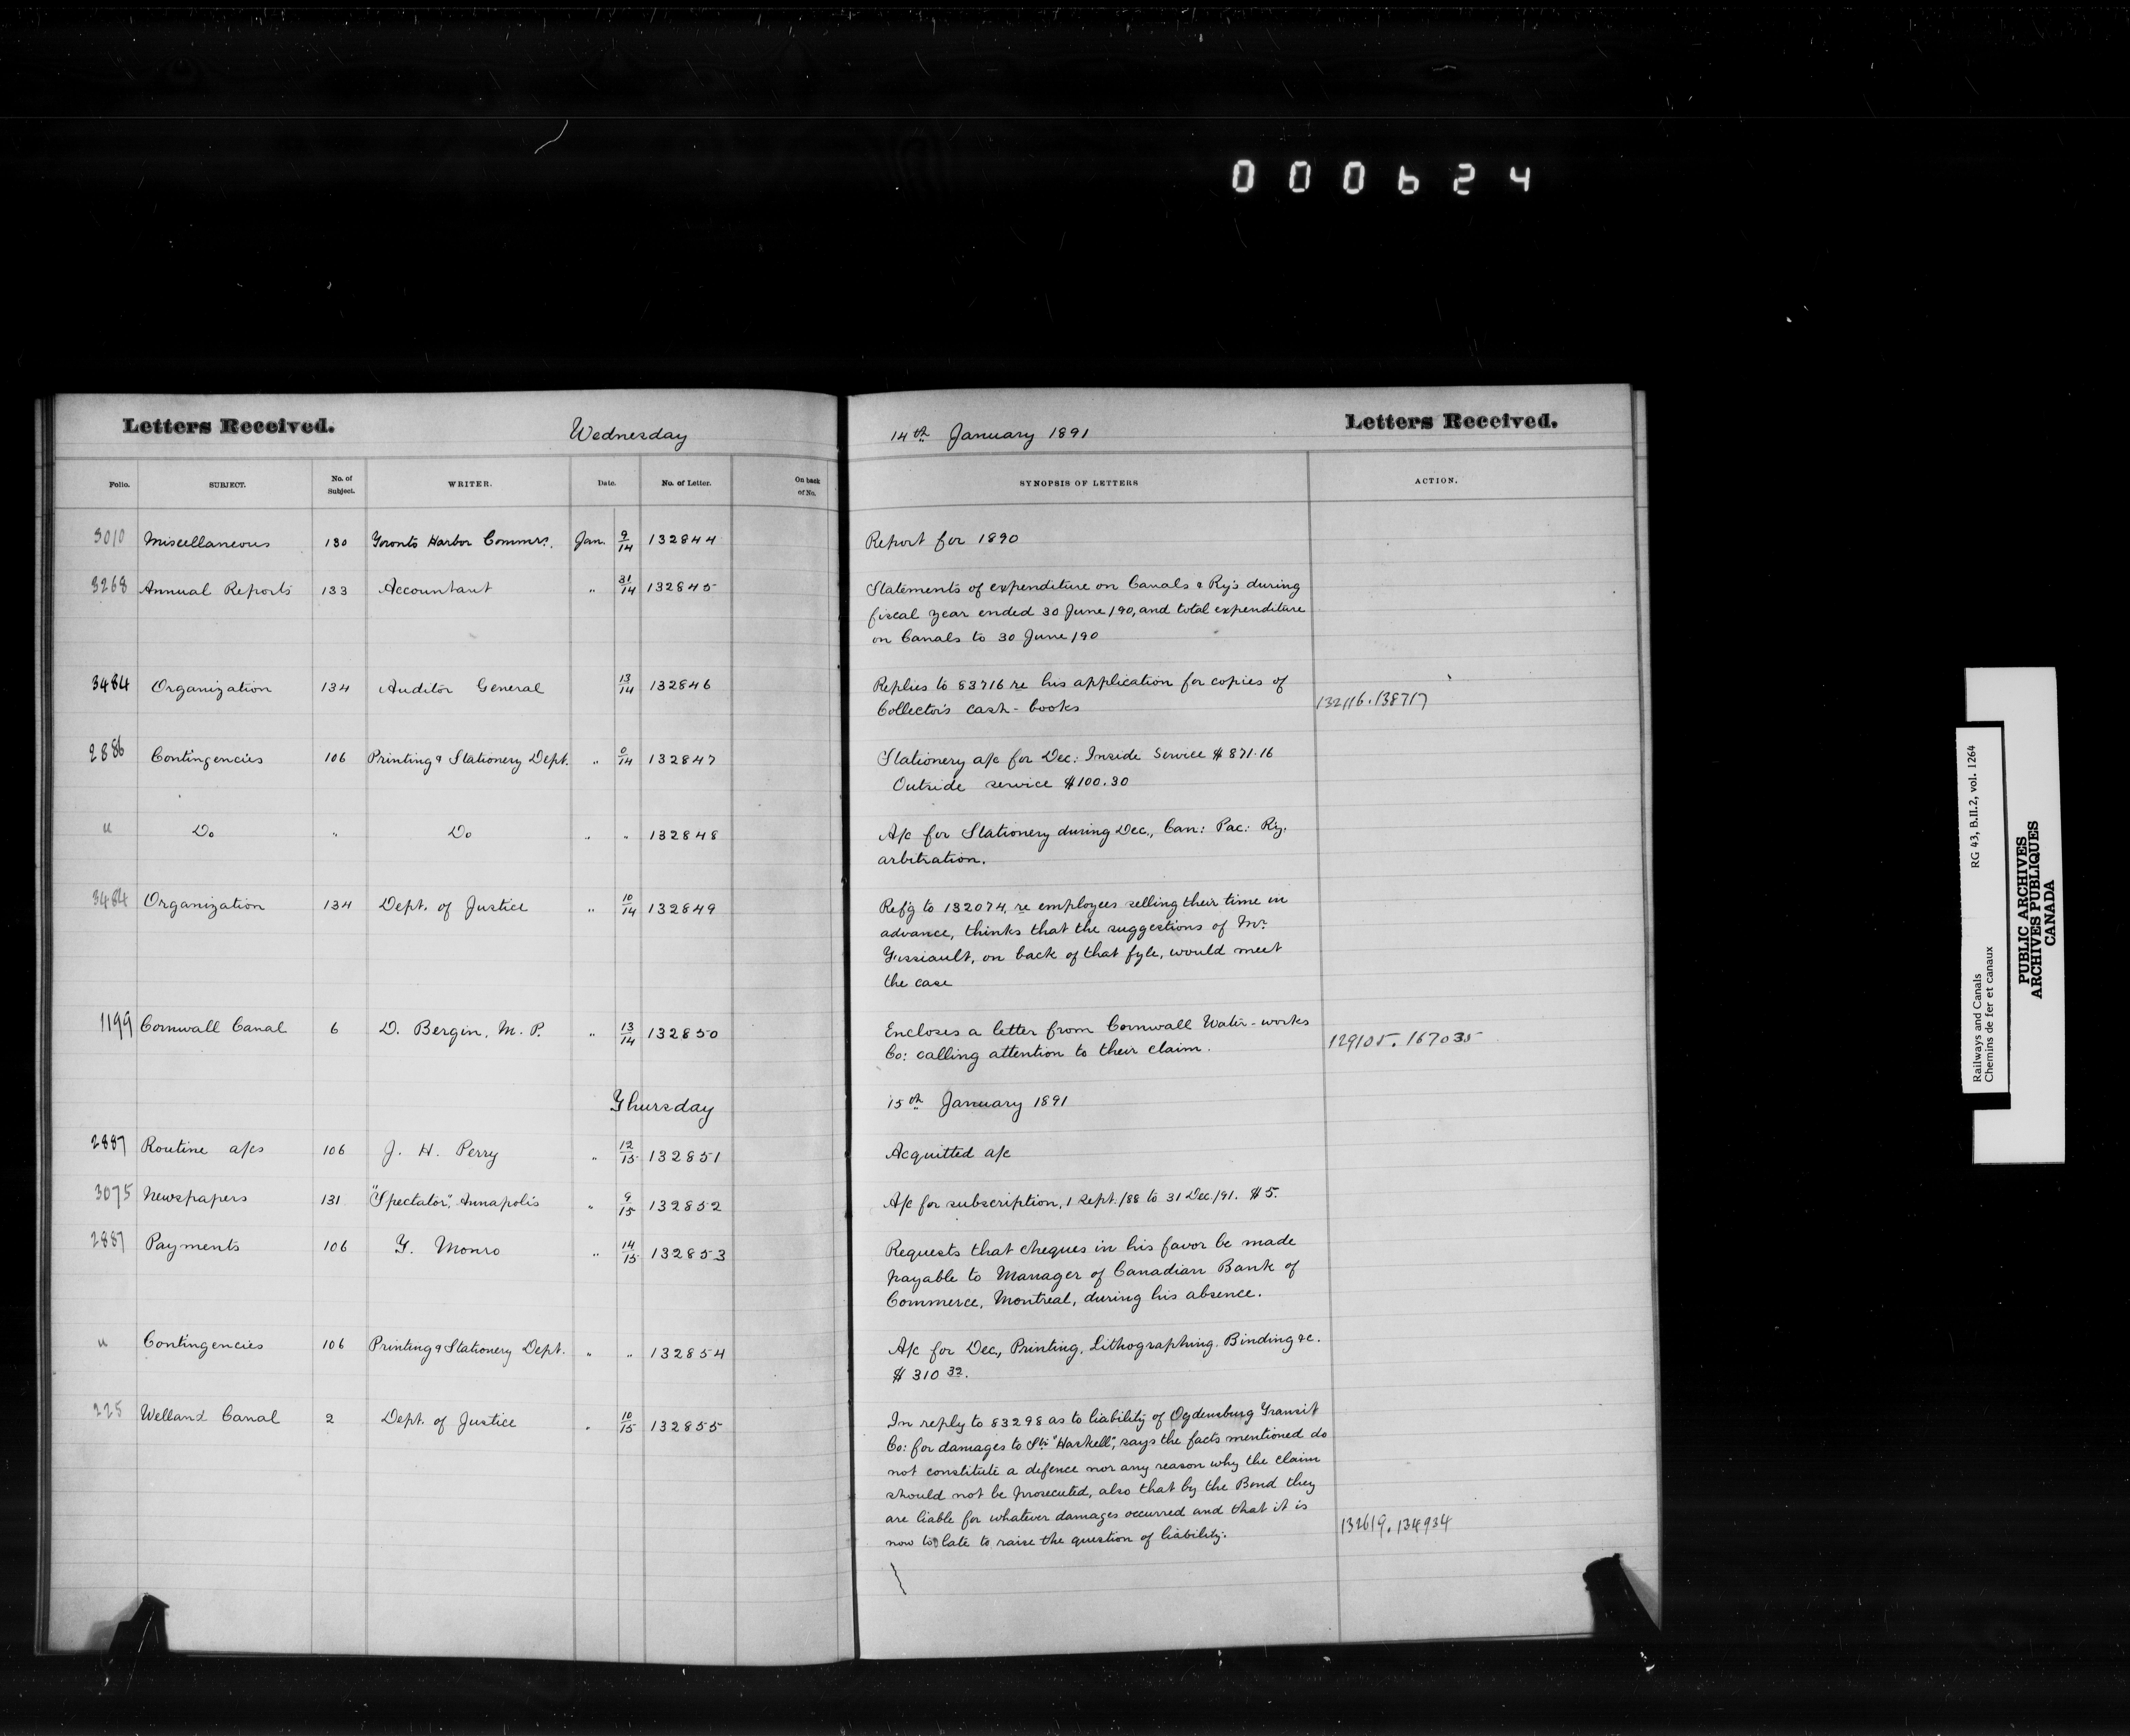 000624
Letters Received. Wednesday 14th January 1891 Letters Received.
Folio. SUBJECT. No. of Subject. WRITER. Date. No. of Letter. On back of No. SYNOPSIS OF LETTERS ACTION.
3010 Miscellaneous 130 Toronto Harbor Commrs. Jan. 9/14 132844 Report for 1890
3268 Annual Reports 133 Accountant " 31/14 132845 Statements of expenditure on Canals & Rys during
fiscal year ended 30 June/90, and total expenditure
on Canals to 30 June/90
3484 Organization 134 Auditor General 13/14 132846 Replies to 83716 re his application for copies of
Collector's cash-books 132116.138717
2886 Contingencies 106 Printing & Stationery Dept. " 0/14 132847 Stationery a/c for Dec: Inside Service $871.16
Outside service $100.30
" Do " Do " " 132848 A/c for Stationery during Dec., Can: Pac: Ry.
arbitration.
3484 Organization 134 Dept. of Justice " 10/14 132849 Ref'g to 132074, re employees selling their time in
advance, thinks that the suggestions of Mr.
on back of that fyle, would meet
the case
1199 Cornwall Canal 6 D. Bergin, M.P. " 13/14 132850 Encloses a letter from Cornwall Water-works
Co: calling attention to their claim. 129105.167035
Thursday 15th January 1891
2887 Routine a/cs 106 J. H. Perry " 12/15 132851 Acquitted a/c
3075 Newspapers 131 "Spectator", Annapolis " 9/15 132852 A/c for subscription, 1 Sept./88 to 31 Dec./91. $5.
2887 Payments 106 T. Monro " 14/15 132853 Requests that cheques in his favor be made
payable to Manager of Canadian Bank of
Commerce, Montreal, during his absence.
" Contingencies 106 Printing & Stationery Dept. " " 132854 A/c for Dec., Printing, Lithographing, Binding &c.
$310 32.
225 Welland Canal 2 Dept. of Justice " 10/15 132855 In reply to 83298 as to liability of Ogdensburg Transit
Co: for damages to Str "Haskell", says the facts mentioned do
not constitute a defence nor any reason why the claim
should not be prosecuted, also that by the Bond they
are liable for whatever damages occurred and that it is
now too late to raise the question of liability. 132619.134934
Railways and Canals RG 43, B.II.2, vol. 1264
Chemins de fer et canaux
PUBLIC ARCHIVES
ARCHIVES PUBLIQUES
CANADA